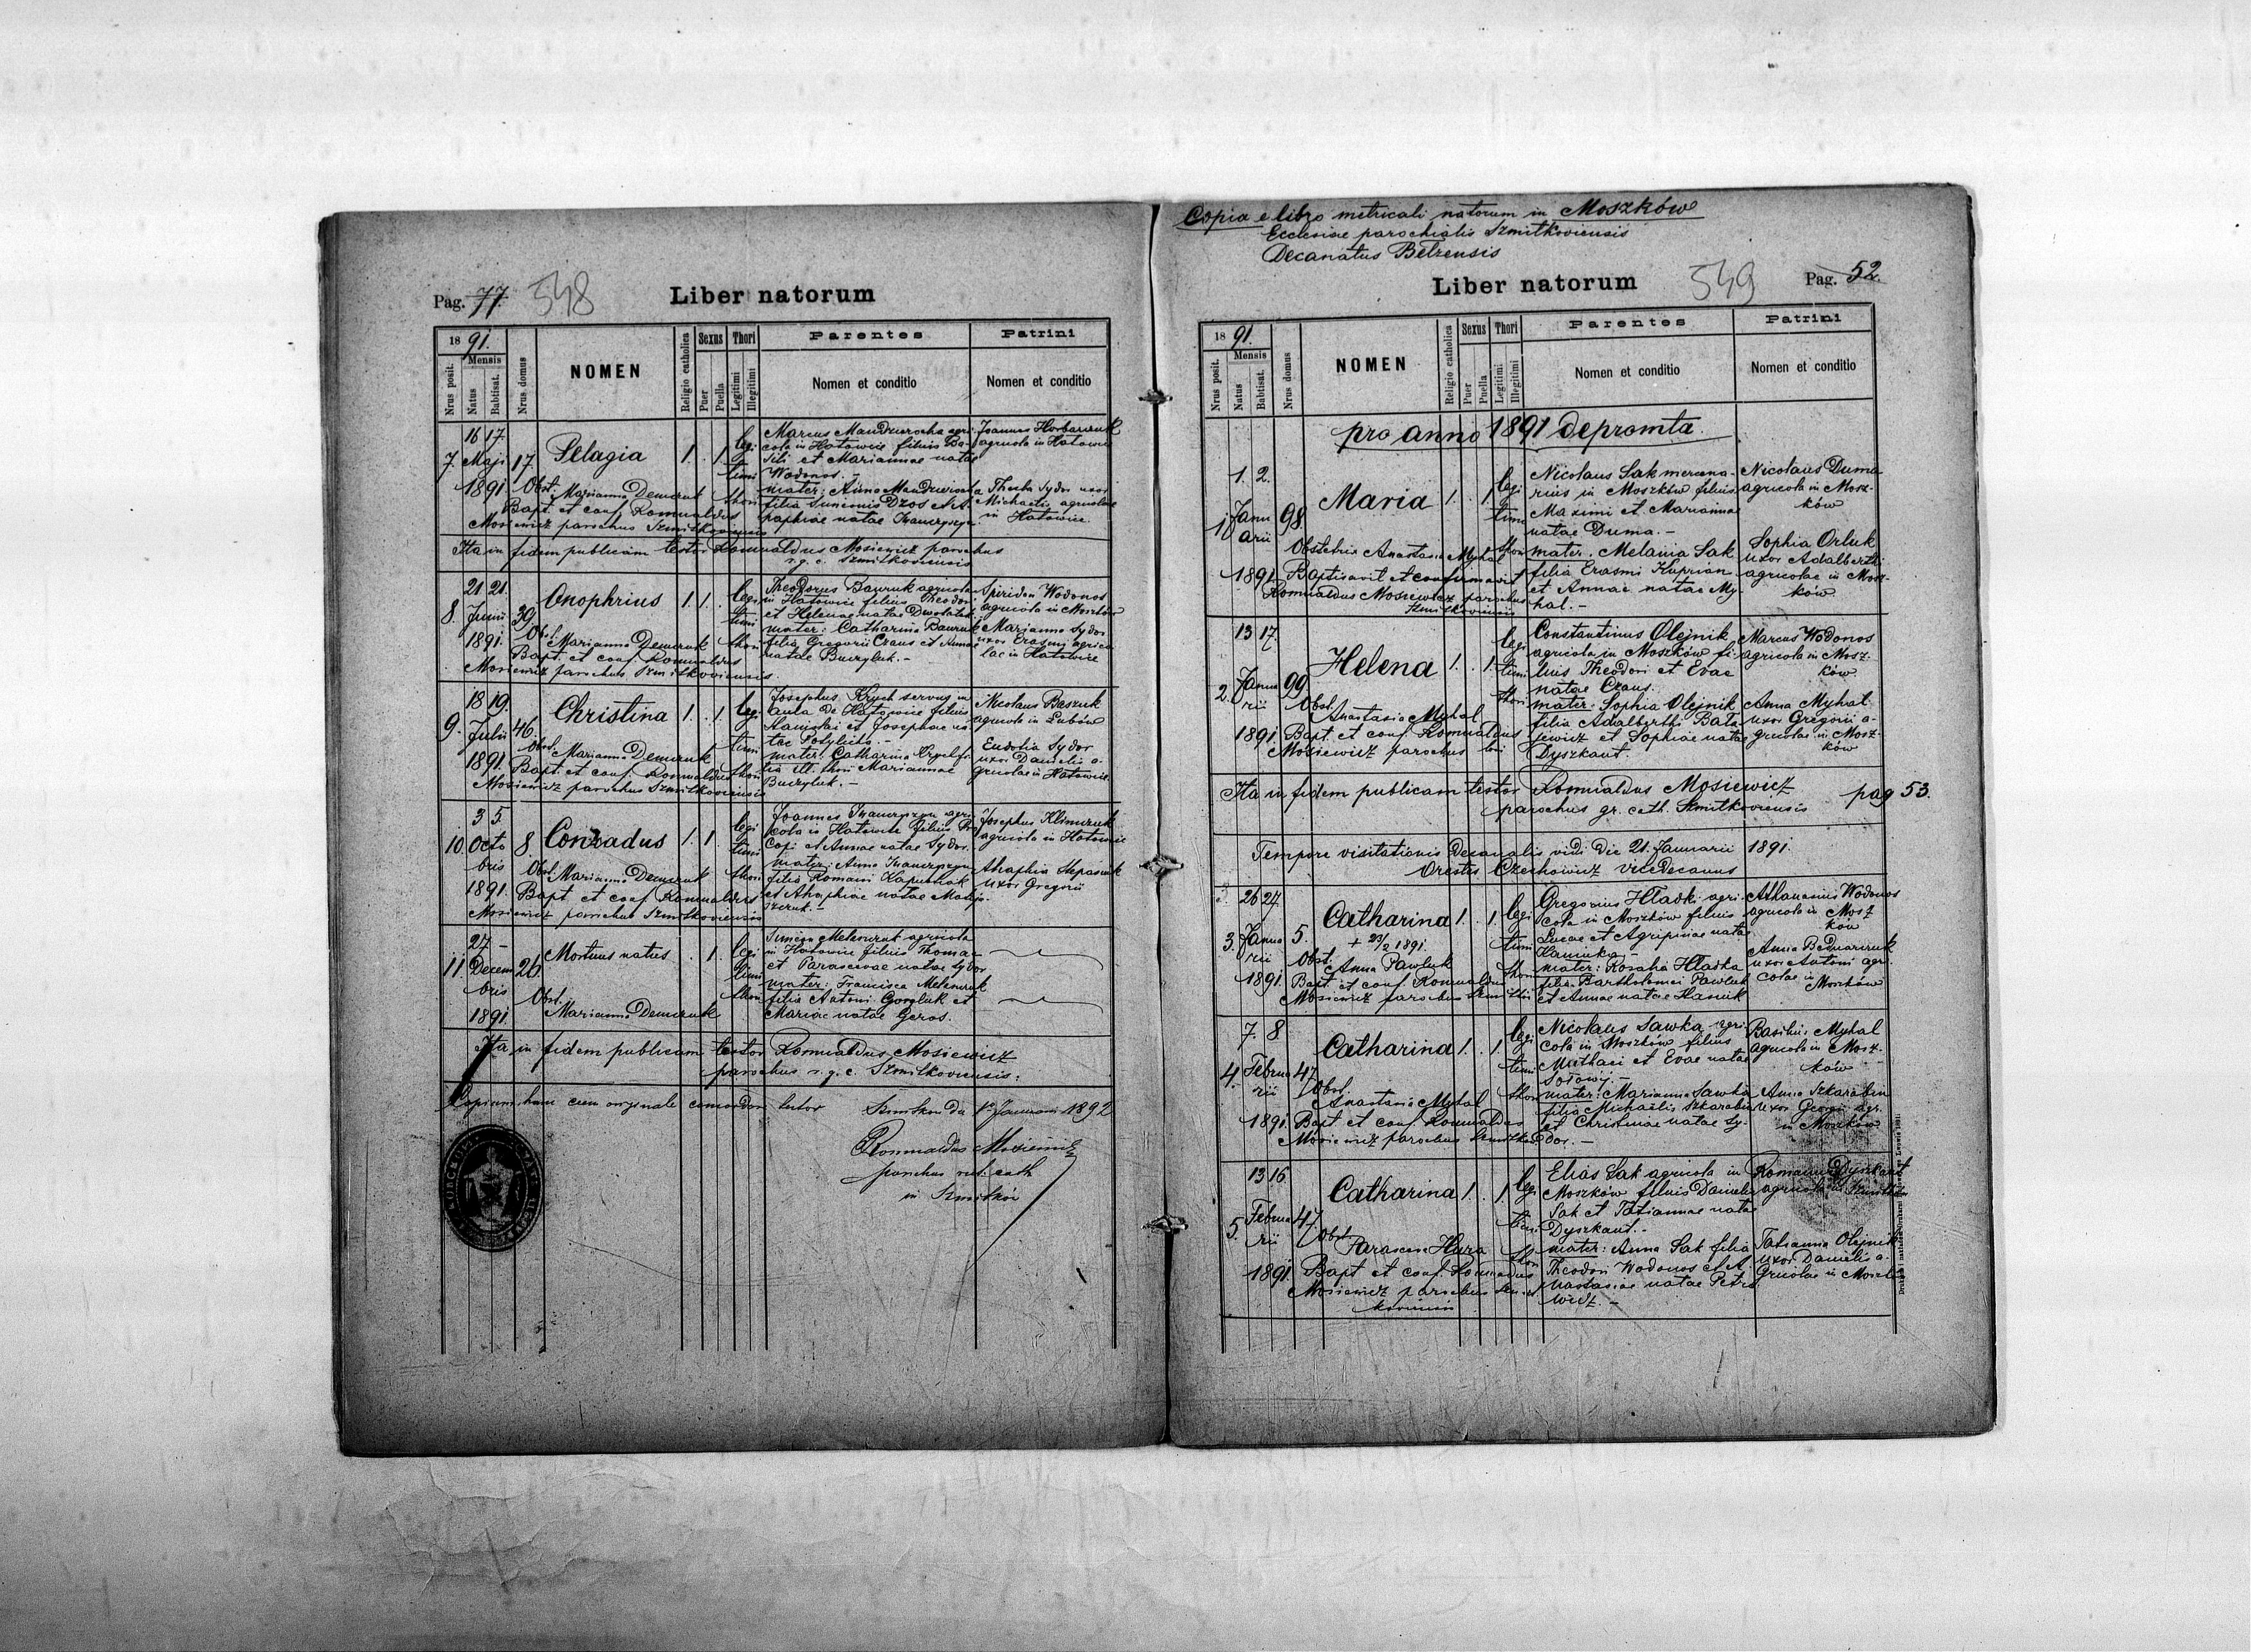 Pag. 77. 548
Liber natorum
1891.
Nrus posit.
Mensis
Natus
Babtisat.
Nrus domus
NOMEN
Religio catholica
Sexus
Puer
Puella
Thori
Legitimi
Illegitimi
Parentes
Nomen et conditio
Patrini
Nomen et conditio
7. 16 17. Maji 1891. 17
Pelagia 1. . 1. legi timi thori
Obst. Marianna Demczuk
Bapt. et conf. Romualdus
Mosiewicz parochus Szmitkoviensis
Marcus agri-
cola in Hatowice filius Ba-
sili et Mariannae natae
Wodonos.
mater: Anna
Joannes Horbaczuk
agricola in Hatowice
Thecla Sydor uxor
Michaelis agricolae
in Hatowice.
Ita in fidem publicam testor Romualdus Mosiewicz parochus
r. g. c. Szmitkoviensis
8. 21 21. Junii 1891. 39
Onophrius 1. 1. . legi timi thori
Obst. Marianna Demczuk
Bapt. et conf. Romualdus
Mosiewicz parochus Szmitkoviensis
Theodorus Bauruk agricola
in Hatowice filius Theodori
et Helenae natae
mater: Catharina Bauruk
filia Gregorii Czaus et Annae
natae Buczyluk. -
Spiridon Wodonos
agricola in Moszków
Marianna Sydor
uxor Erasmi agrico
lae in Hatowice
9. 18 19. Julii 1891. 46.
Christina 1. . 1. legi timi thori
Obst. Marianna Demczuk
Bapt. et conf. Romualdus
Mosiewicz parochus Szmitkoviensis
Josephus Krych servus in
aula de Hatowice filius
et Josephae na-
tae
mater: Catharina Krych fi-
lia ill. thori Mariannae
Buczyluk. -
Nicolaus Baszuk
agricola in Lubów
Eudotia Sydor
uxor Danielis a-
gricolae in Hatowice.
10. 3 5. Octo bris 1891. 8.
Conradus 1. 1. . legi timi thori
Obst. Marianna Demczuk
Bapt. et conf. Romualdus
Mosiewicz parochus Szmitkoviensis
Joannes agri
cola in Hatowice filius Pro
copi et Annae natae Sydor.
mater: Anna
filia Romani
et Ahaphiae natae
Josephus Klimczuk
agricola in Hatowice
Ahaphia Stepaniuk
uxor Gregorii
11. 27 - Decem bris 1891. 26
Mortuus natus . 1. legi timi thori
Obst. Marianna Demczuk
Simeon agricola
in Hatowice filius Thomae
et Parascevae natae Sydor
mater: Francisca
filia Antoni et
Mariae natae Geros.
Ita in fidem publicam testor Romualdus Mosiewicz
parochus r. g. c. Szmitkoviensis.
Copiam hanc cum originale concordare testor
Januarii 1892
Romualdus Mosiewicz
parochus rut. cath
in Szmitków
Copia e libro metricali natorum in Moszków
Ecclesiae parochialis Szmitkoviensis
Decanatus Belzensis
Liber natorum
549 Pag. 52.
1891.
Nrus posit.
Mensis
Natus
Babtisat.
Nrus domus
NOMEN
Religio catholica
Sexus
Puer
Puella
Thori
Legitimi
Illegitimi
Parentes
Nomen et conditio
Patrini
Nomen et conditio
pro anno 1891 depromta.
1 1. 2. Janu arii 1891. 98
Maria 1. . 1. legi timi thori
Obstetrix Anastasia Myhal
Baptisavit et confirmavit
Romualdus Mosiewicz parochus
Szmitkoviensis
Nicolaus Sak mercena-
rius in Moszków filius
Maximi et Mariannae
natae Duma. -
mater. Melania Sak
filia Erasmi Kuprian
et Annae natae My-
hal. -
Nicolaus Duma
agricola in Mosz-
ków
Sophia Orluk
uxor Adalberti
agricolae in Mosz-
ków
2. 13 17. Janua rii 1891. 99
Helena 1. . 1. legi timi thori
Obst. Anastasia Myhal
Bapt. et conf. Romualdus
Mosiewicz parochus loci
Constantinus Olejnik
agricola in Moszków fi-
lius Theodori et Evae
natae Czaus.
mater: Sophia Olejnik
filia Adalberthi Bata-
jewicz et Sophiae natae
Dyszkant.
Marcus Wodonos
agricola in Mosz-
ków
Anna Myhal
uxor Gregorii a-
gricolae in Mosz-
ków
Ita in fidem publicam testor Romualdus Mosiewicz pag 53.
parochus gr. cath. Szmitkoviensis
Tempore visitationis Decanalis vidi die 21. Januarii 1891.
Orestes Czechowicz viceDecanus
3. 26 27. Janua rii 1891. 5.
Catharina 1. . 1. legi timi thori
+ 23/2 1891.
Obst. Anna Pawluk
Bapt. et conf. Romualdus
Mosiewicz parochus
Gregorius Hladki agri-
cola in Moszków filius
Lucae et Agripinae natae
Kaminka -
mater: Rosalia Hladka
filia Bartholomei Pawluk
et Annae natae Hanuk
Athanasius Wodonos
agricola in Mosz
ków
Anna Bednarczuk
uxor Antoni agri-
colae in
Moszków
4. 7. 8 Februa rii 1891. 47.
Catharina 1. . 1. legi timi thori
Obst. Anastasia Myhal
Bapt. et conf. Romualdus
Mosiewicz parochus
Nicolaus Sawka agri-
cola in Moszków filius
Mathaei et Evae natae
Sołowij. -
mater: Marianna Sawka
filia Michaelis Szkarabin
et Christinae natae Sy-
dor. -
Basilius Myhal
agricola in Mosz-
ków
Anna Szkarabin
uxor Georgii agr.
in Moszków
5. 13 16. Februa rii 1891. 47.
Catharina 1. . 1. legi timi thori
Obst. Parascevia Hura
Bapt et conf. Romualdus
Mosiewicz parochus
Elias Sak agricola in
Moszków filius Danielis
Sak et Tatiannae natae
Dyszkant. -
mater: Anna Sak filia
Theodori Wodonos et A-
nastasiae natae Petro
wicz. -
Romanus Dyszkant
agricola in Szmitków
Tatianna Olejnik
uxor Danielis a-
gricolae in Moszków